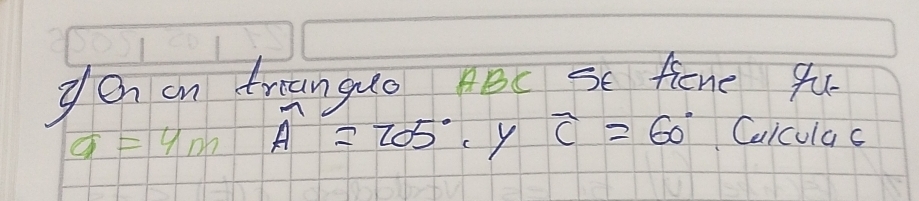 g) En un triangulo ABC se tiene qu-
a = 4m Â = 105°. y Ĉ = 60°. Calcula c